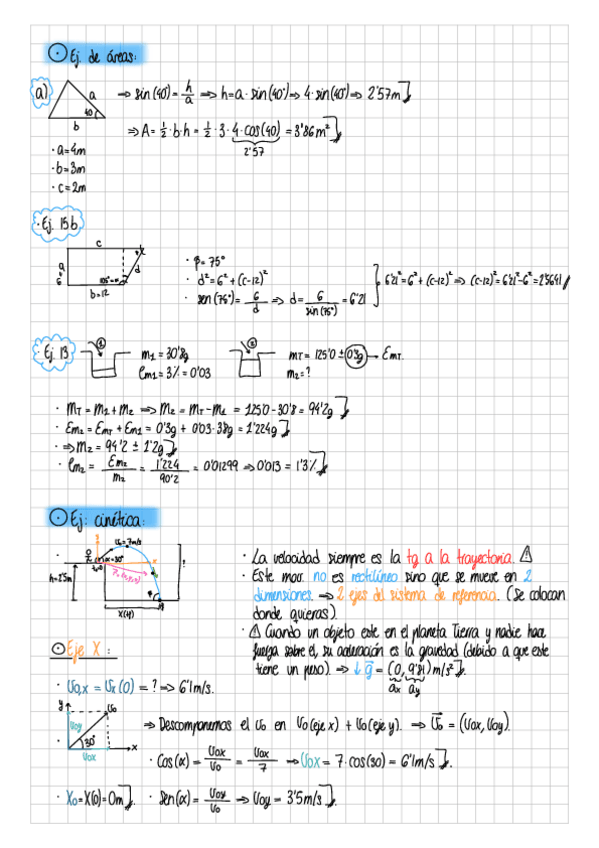 Ej. de áreas:
a) a 40° b → sin(40)= h/a ⇒ h=a·sin(40°) ⇒ 4·sin(40°) ⇒ 2'57m
⇒ A= 1/2·b·h = 1/2·3·4·cos(40) = 3'86m²
2'57
· a=4m
· b=3m
· c=2m
· Ej. 15b
c
a 6 d
b=12
· β=75°
· d²=6²+(c-12)²
· sen(75°)= 6/d ⇒ d= 6/sin(75°) = 6'21
6'21²=6²+(c-12)² ⇒ (c-12)²=6'21²-6²=2'5641
· Ej 13 1 m1 = 30'8g 2 mT= 125'0 ± 0'3g → EmT.
em1= 3% = 0'03 m2=?
· mT=m1+m2 ⇒ m2=mT-m1 = 125'0-30'8 = 94'2g
· Em2= EmT+Em1= 0'3g + 0'03·38g = 1'224g
· ⇒ m2= 94'2 ± 1'2g
· em2= Em2/m2 = 1'224/90'2 = 0'01299 ⇒ 0'013 = 1'3%
Ej: cinética:
v0=7m/s
α=30°
h=2'5m
x(tf)
· La velocidad siempre es la tg a la trayectoria.
· Este mov. no es rectilíneo sino que se mueve en 2
dimensiones. ⇒ 2 ejes del sistema de referencia. (Se colocan
donde quieras).
· Cuando un objeto este en el planeta Tierra y nadie hace
fuerza sobre él, su aceleración es la gravedad (debido a que este
tiene un peso). ⇒ ↓g⃗ = (0, 9'81) m/s².
ax ay
Eje X:
· v0,x = vx(0) = ? ⇒ 6'1m/s.
y v0 v0y 30° v0x x
⇒ Descomponemos el v0 en v0(eje x) + v0(eje y). ⇒ v⃗0 = (v0x, v0y).
· Cos(α)= v0x/v0 = v0x/7 ⇒ v0x = 7·cos(30) = 6'1m/s.
· x0=x(0)=0m. · Sen(α)= v0y/v0 ⇒ v0y= 3'5m/s.